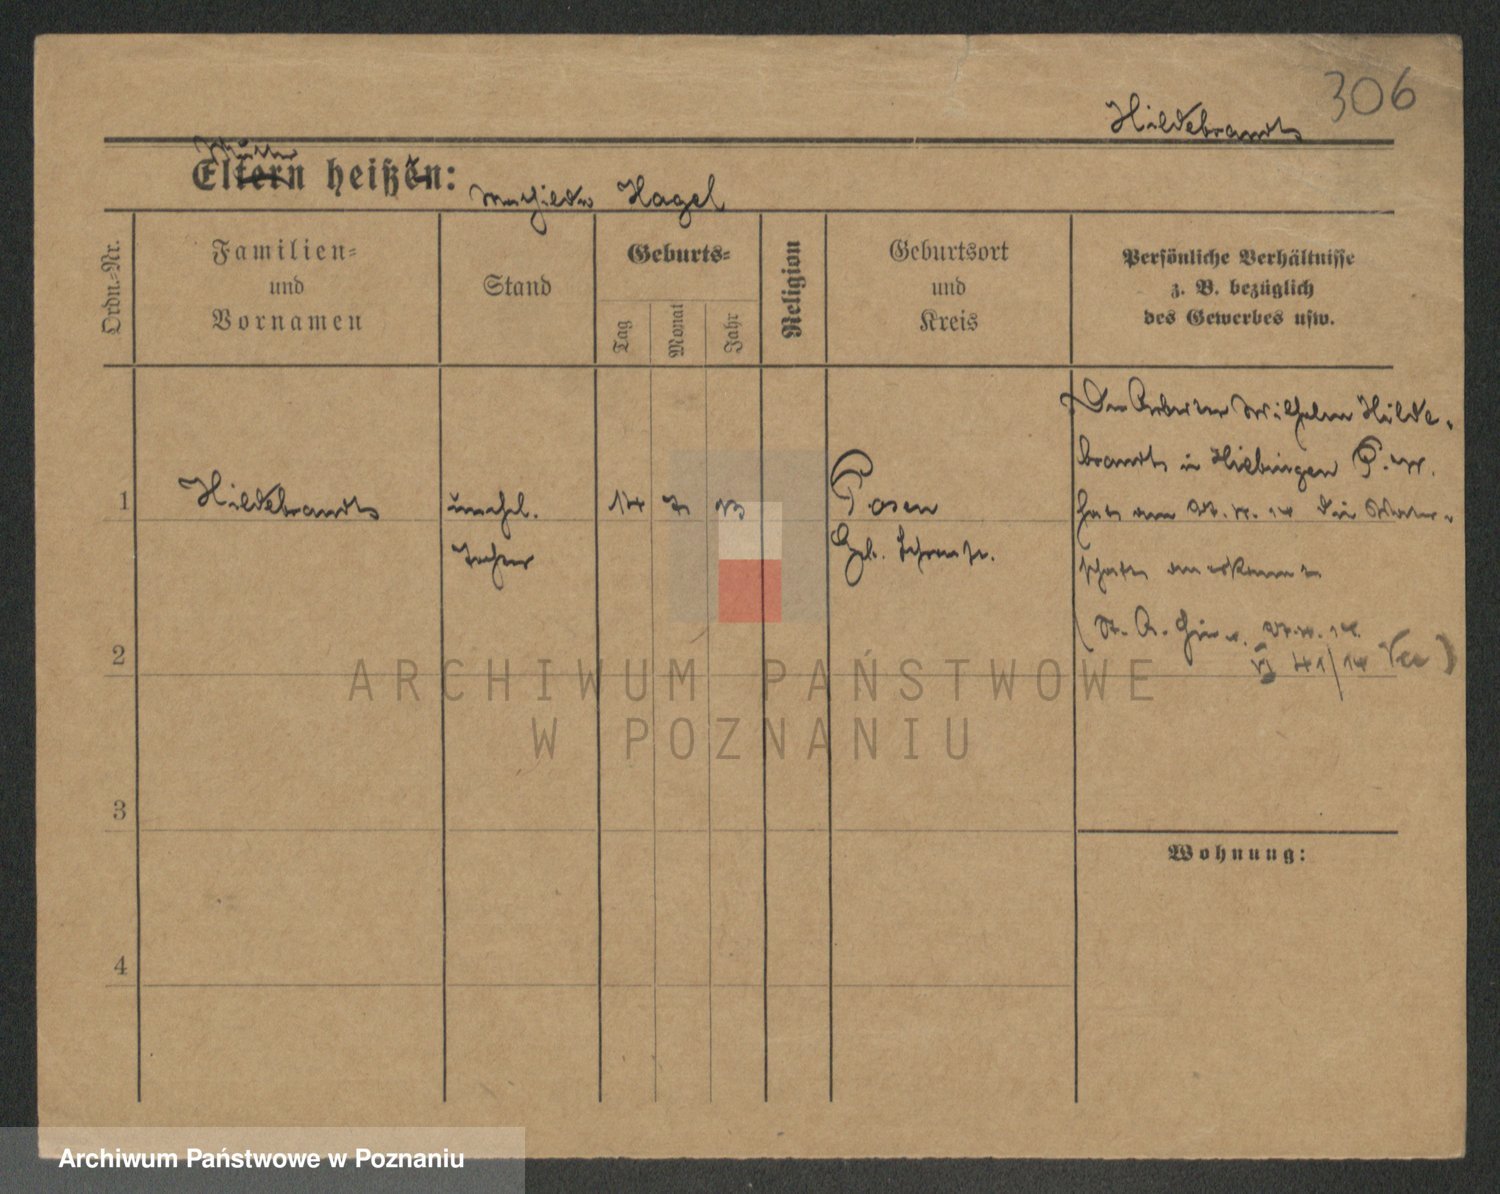 306
Hildebrandt
Mutter
Eltern heißen:
Mathilde Hagel
Ordn.-Nr.
Familien-
und
Vornamen
Stand
Geburts-
Tag
Monat
Jahr
Religion
Geburtsort
und
Kreis
Persönliche Verhältnisse
z. B. bezüglich
des Gewerbes usw.
1
Hildebrandt
unehel.
Tochter
14
Posen
Der Arbeiter Wilhelm Hilde-
brandt in
hat am 14 die Vater-
schaft anerkannt
2
41/14
3
4
Wohnung:
ARCHIWUM PAŃSTWOWE
W POZNANIU
Archiwum Państwowe w Poznaniu